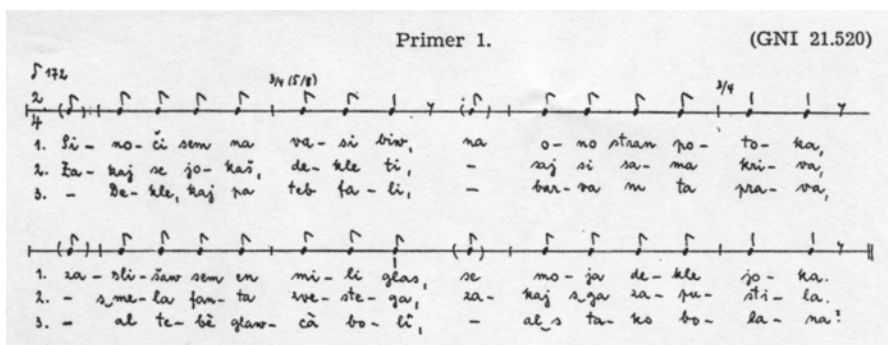 Primer 1. (GNI 21.520)
♪ 172
3/4 (5/8) 3/4
2/4
1. Si - no - či sem na va - si biw, na o - no stran po - to - ka,
2. Za - kaj se jo - kaš, de - kle ti, - saj si sa - ma kri - va,
3. - De - kle, kaj pa teb fa - li, - bar - va ni ta pra - va,
1. za - sli - šaw sem en mi - li glas, se mo - ja de - kle jo - ka.
2. - s me - la fan - ta zve - ste - ga, za - kaj s ga za - pu - sti - la.
3. - al te - bè glaw - cà bo - lì, - al s ta - ko bo - la - na?